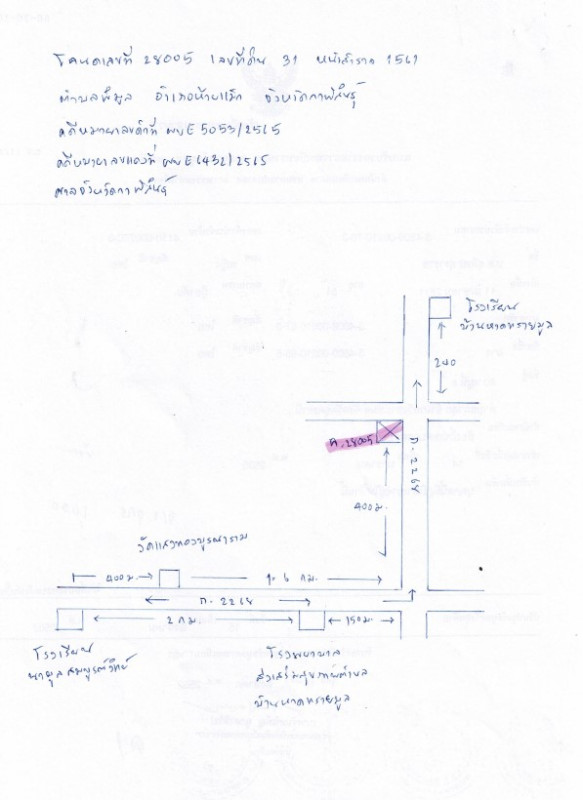 โฉนดเลขที่ 28005 เลขที่ดิน 31 หน้าสำรวจ 1561
ตำบลพิมูล อำเภอห้วยเม็ก จังหวัดกาฬสินธุ์
คดีหมายเลขดำที่ ผบE 5053/2565
คดีหมายเลขแดงที่ ผบE 6432/2565
ศาลจังหวัดกาฬสินธุ์
โรงเรียน
บ้านหาดทรายมูล
200
ฉ.28005
ถ.2268
400ม.
วัดแสงทองบูรณาราม
400ม.
1.6 กม.
ถ.2268
2 กม.
150ม.
โรงเรียน
โรงพยาบาล
ส่งเสริมสุขภาพตำบล
บ้านหาดทรายมูล